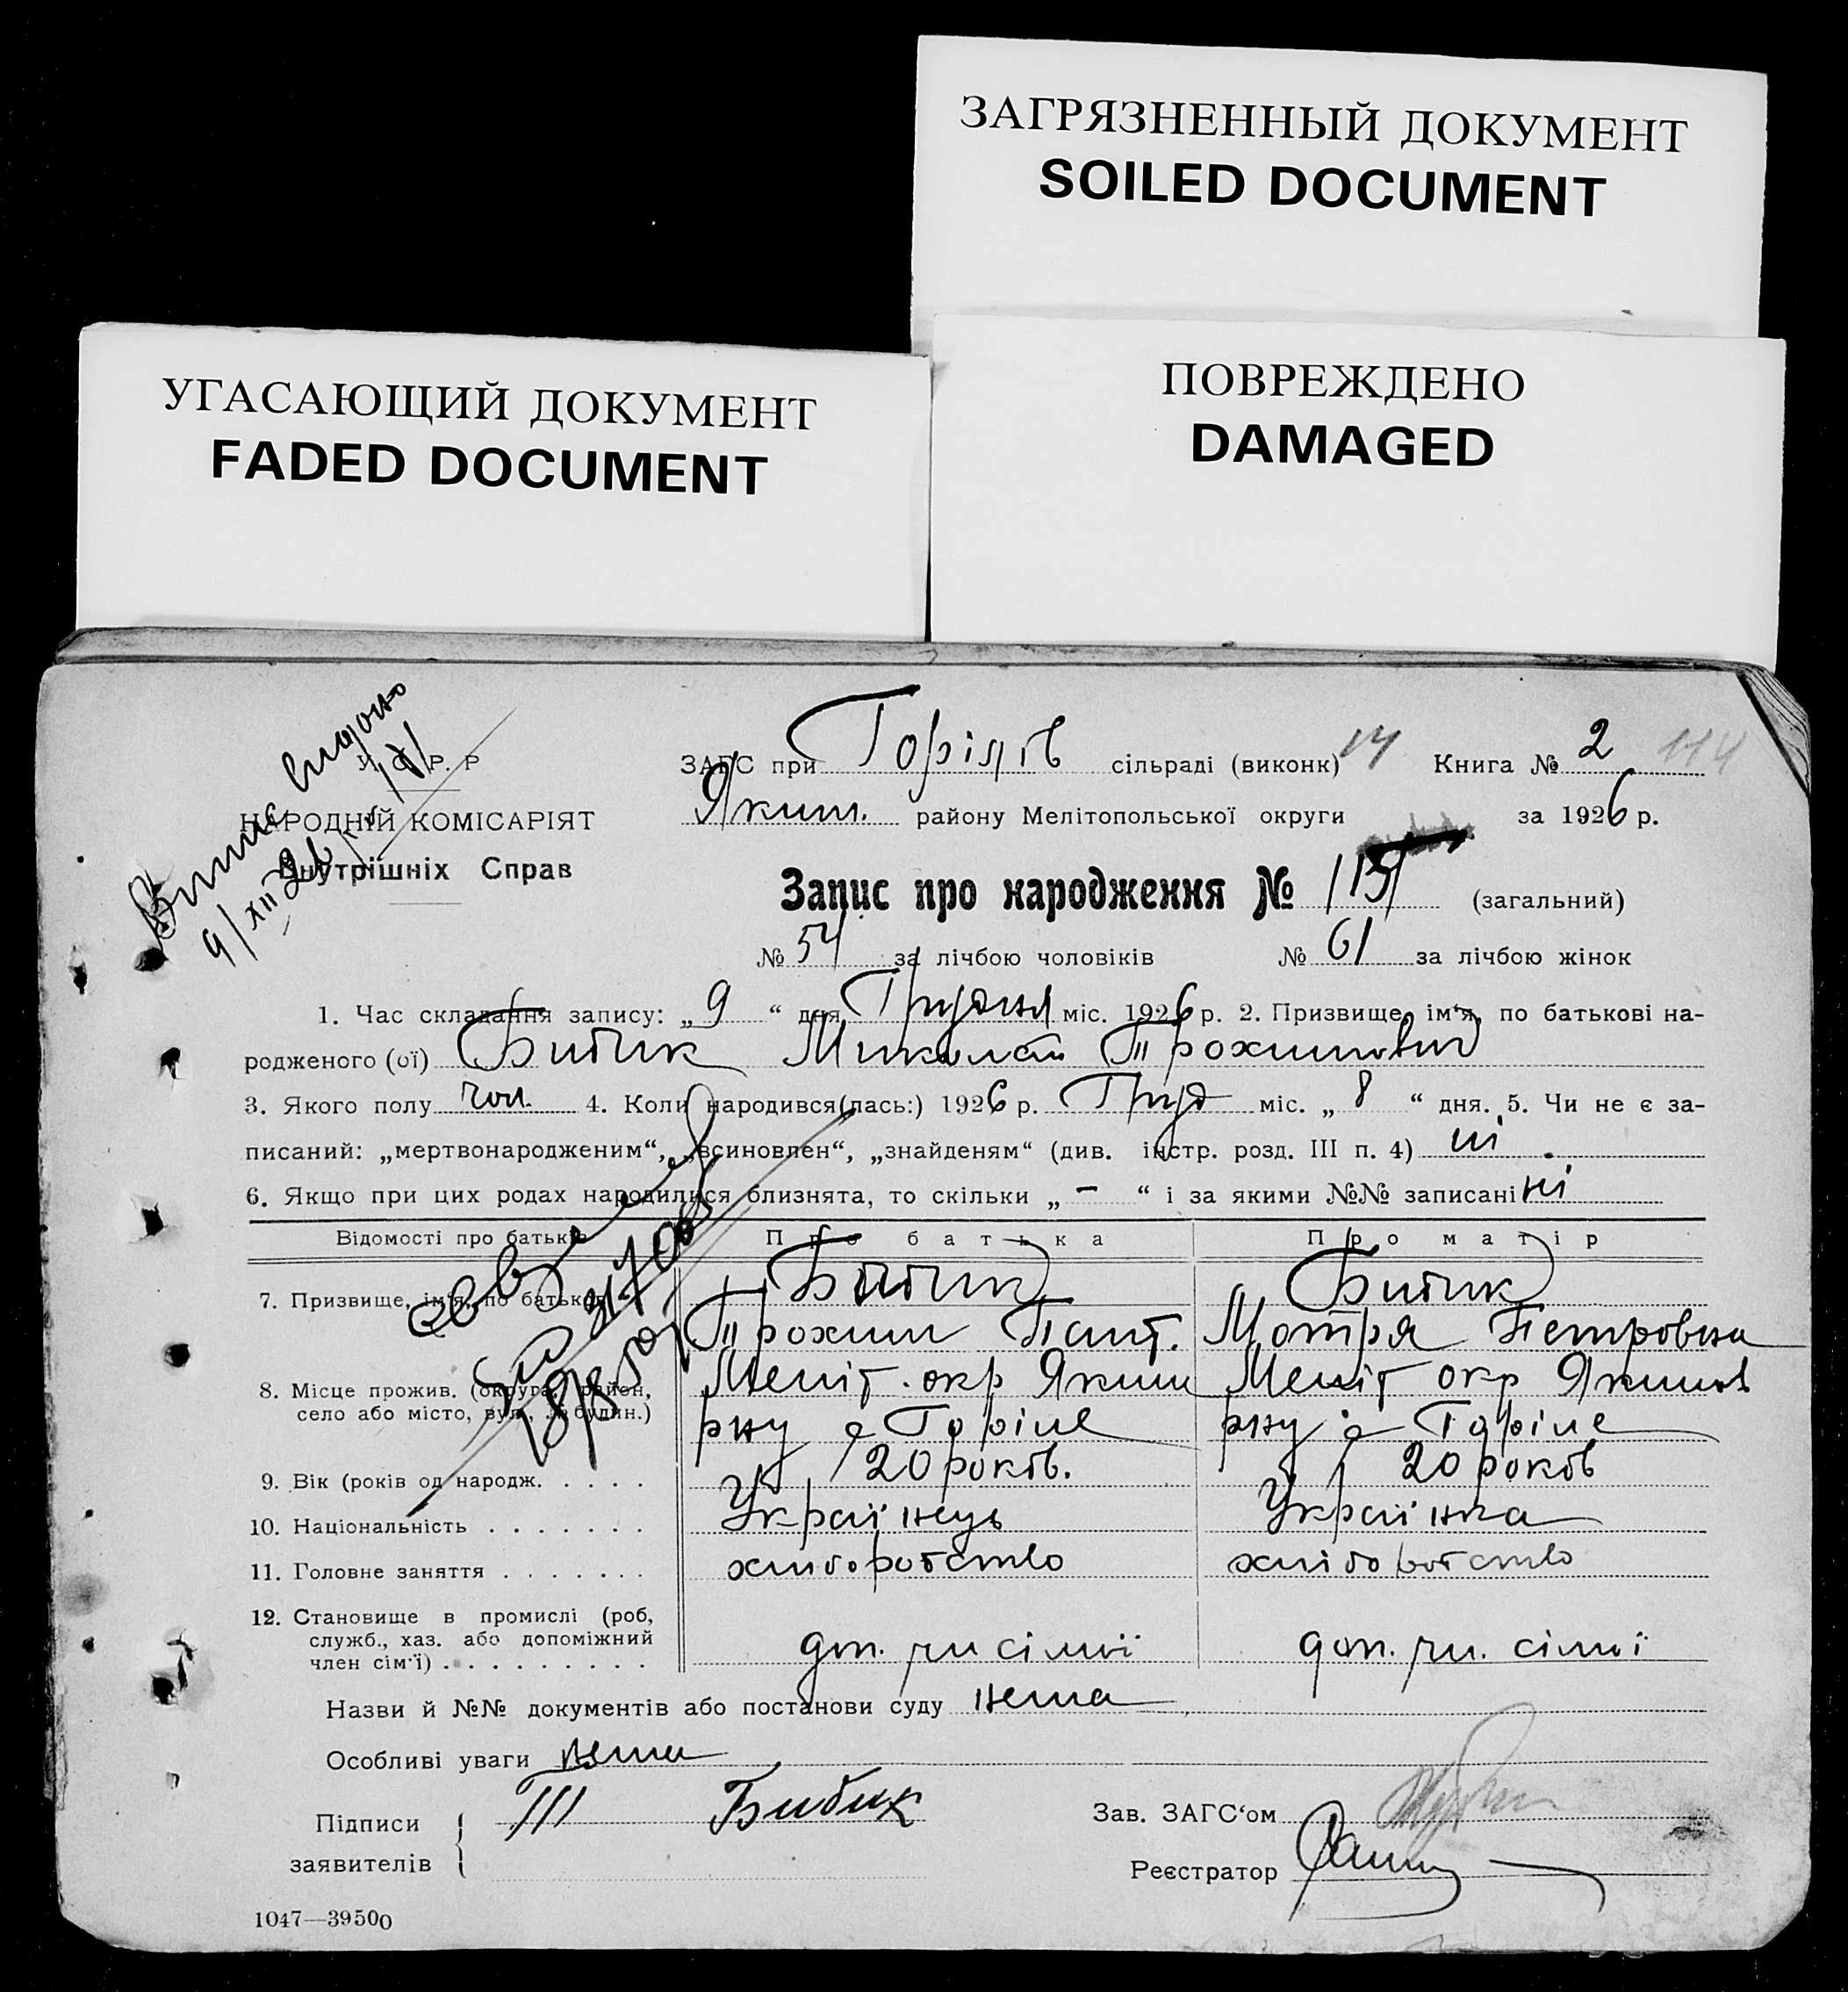 ЗАГРЯЗНЕННЫЙ ДОКУМЕНТ
SOILED DOCUMENT
УГАСАЮЩИЙ ДОКУМЕНТ
FADED DOCUMENT
ПОВРЕЖДЕНО
DAMAGED
У. С. Р. Р
НАРОДНІЙ КОМІСАРІЯТ
Внутрішніх Справ
ЗАГС при Горілів сільраді (виконк) 14 Книга № 2 114
Яким. району Мелітопольської округи за 1926 р.
Запис про народження № 115 (загальний)
№ 54 за лічбою чоловіків № 61 за лічбою жінок
1. Час складання запису: „9“ дня Грудня міс. 1926 р. 2. Призвище, ім‘я, по батькові на-
родженого (ої) Бибик Микола Трохимович
3. Якого полу чол. 4. Коли народився(лась:) 1926 р. Груд міс. „8“ дня. 5. Чи не є за-
писаний: „мертвонародженим“, „всиновлен“, „знайденям“ (див. інстр. розд. III п. 4) ні.
6. Якщо при цих родах народилися близнята, то скільки „-“ і за якими №№ записані ні
Відомості про батьків Про батька Про матір
7. Призвище, ім‘я, по батьков. Бибик Бибик
Трохим Пант. Мотря Петровна
8. Місце прожив. (округа, район, Меліт. окр Яким Меліт окр Якимов
село або місто, вул., № будин.) рну с Горіле рну с Горіле
9. Вік (років од народж. . . . . 20 років. 20 років
10. Національність . . . . . . . Українець Українка
11. Головне заняття . . . . . . . хлиборобство хліборобство
12. Становище в промислі (роб,
служб., хаз. або допоміжний
член сім‘ї) . . . . . . . . . доп. чл сімї доп. чл. сімї
Назви й №№ документів або постанови суду нема
Особливі уваги нема
Підписи
заявителів
Бибик
Зав. ЗАГС‘ом
Реєстратор
1047—39500